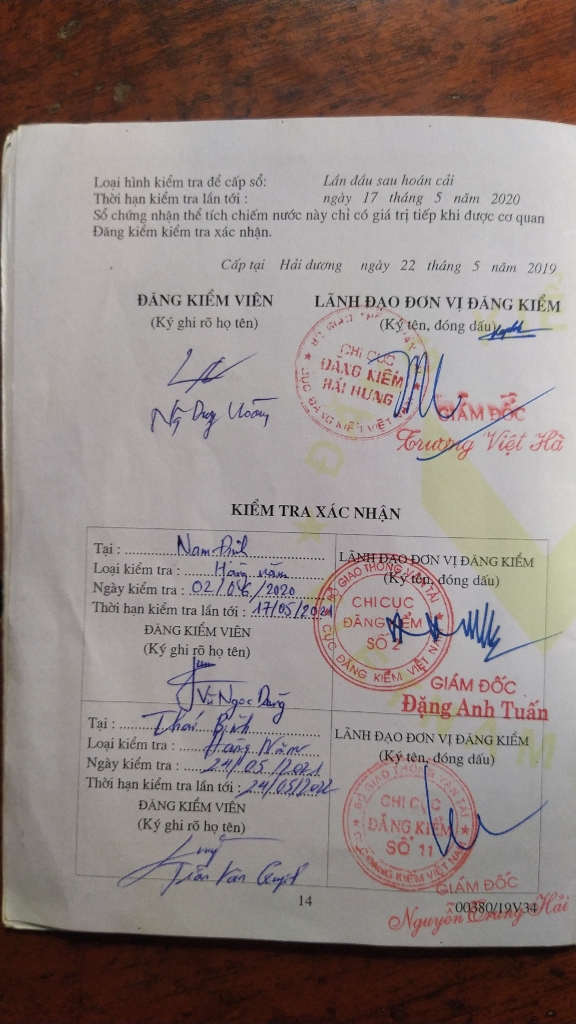 Loại hình kiểm tra để cấp sổ: Lần đầu sau hoán cải
Thời hạn kiểm tra lần tới : ngày 17 tháng 5 năm 2020
Sổ chứng nhận thể tích chiếm nước này chỉ có giá trị tiếp khi được cơ quan
Đăng kiểm kiểm tra xác nhận.
Cấp tại Hải dương ngày 22 tháng 5 năm 2019
ĐĂNG KIỂM VIÊN
(Ký ghi rõ họ tên)
LÃNH ĐẠO ĐƠN VỊ ĐĂNG KIỂM
(Ký tên, đóng dấu)
CHI CỤC
ĐĂNG KIỂM
HẢI HƯNG
CỤC ĐĂNG KIỂM VIỆT NAM
GIÁM ĐỐC
Trương Việt Hà
KIỂM TRA XÁC NHẬN
Tại : Nam Định
Loại kiểm tra : Hàng năm
Ngày kiểm tra : 02/06/2020
Thời hạn kiểm tra lần tới : 17/05/2021
ĐĂNG KIỂM VIÊN
(Ký ghi rõ họ tên)
Vũ Ngọc
LÃNH ĐẠO ĐƠN VỊ ĐĂNG KIỂM
(Ký tên, đóng dấu)
BỘ GIAO THÔNG VẬN TẢI
CHI CỤC
ĐĂNG KIỂM
SỐ 2
CỤC ĐĂNG KIỂM VIỆT NAM
GIÁM ĐỐC
Đặng Anh Tuấn
Tại : Thái Bình
Loại kiểm tra : Hàng Năm
Ngày kiểm tra : 24/05/2021
Thời hạn kiểm tra lần tới : 24/05/2022
ĐĂNG KIỂM VIÊN
(Ký ghi rõ họ tên)
Trần Văn
LÃNH ĐẠO ĐƠN VỊ ĐĂNG KIỂM
(Ký tên, đóng dấu)
BỘ GIAO THÔNG VẬN TẢI
CHI CỤC
ĐĂNG KIỂM
SỐ 11
CỤC ĐĂNG KIỂM VIỆT NAM
GIÁM ĐỐC
Nguyễn Trung Hải
14
00380/19V34